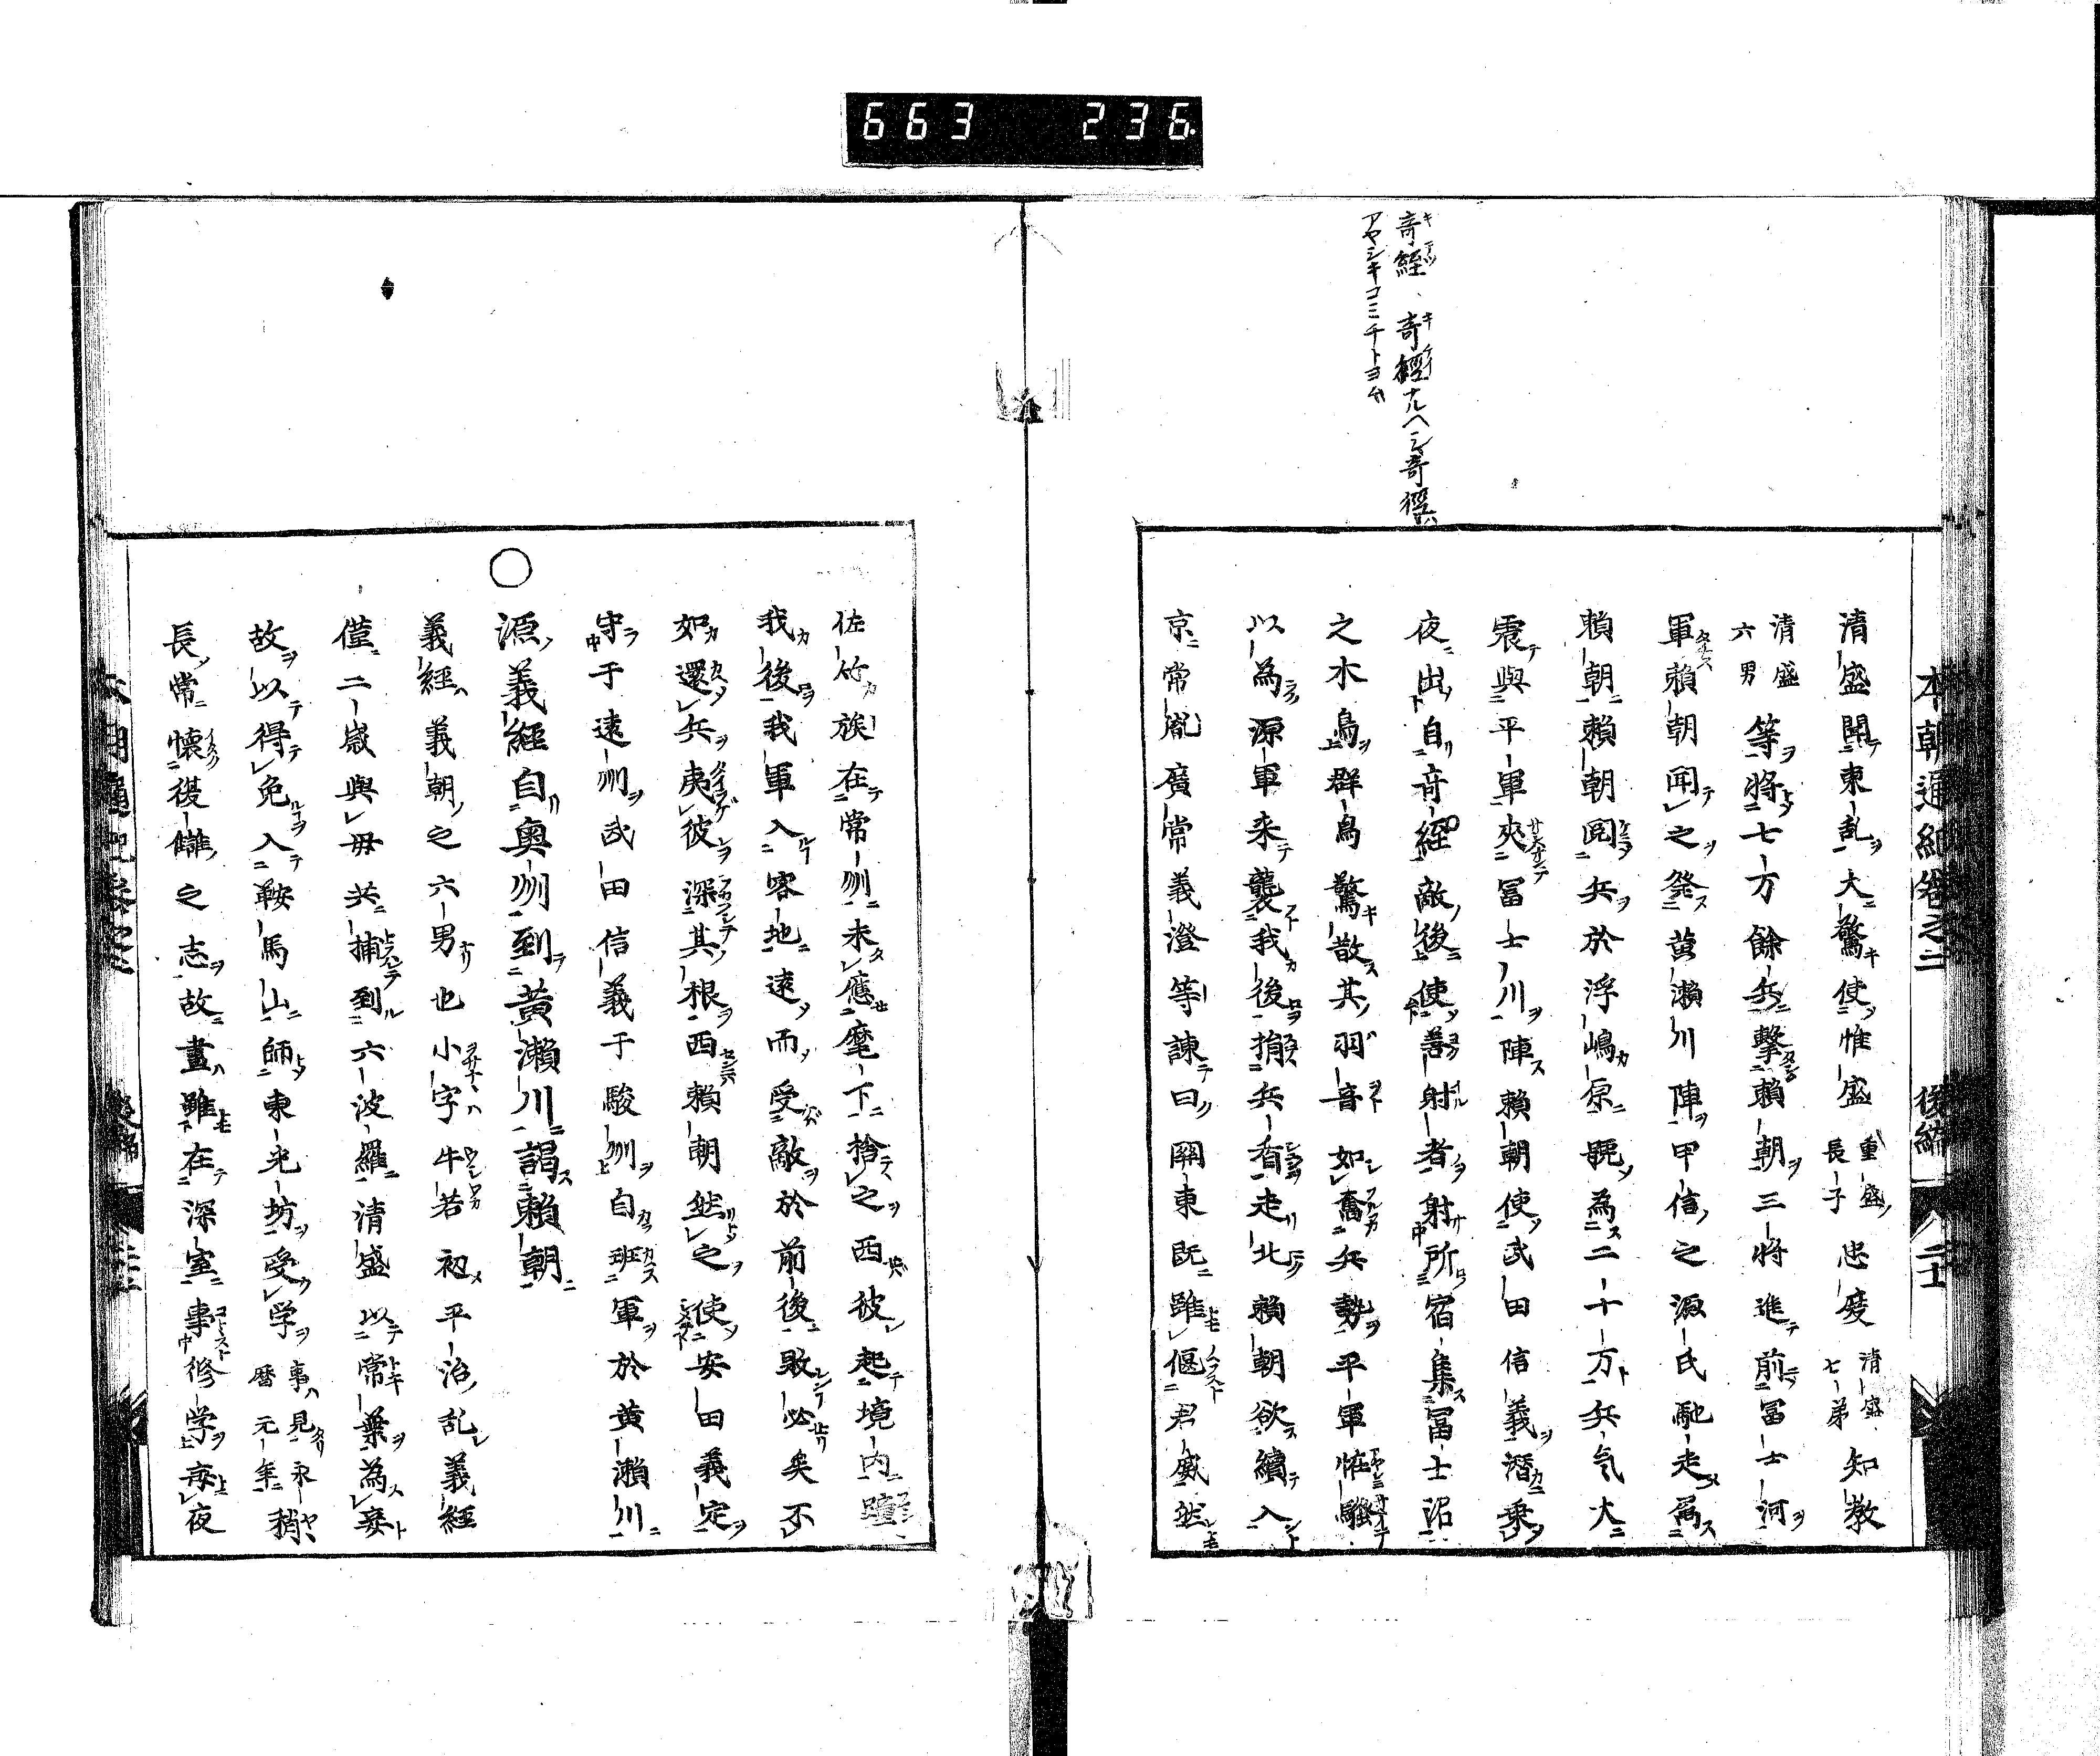 663 236
奇経、奇經ナルヘシ奇徑ハ
アヤシキコミチトヨム
本朝通紀卷之二 後編 二十
清盛聞東乱大驚使惟盛重盛長子忠度清盛七弟知教
清盛六男等將七万餘兵擊賴朝三將進前冨士河
軍賴朝聞之發黄瀬川陣甲信之源氏馳走属
賴朝賴朝閲兵於浮嶋原號為二十万兵気大
震與平軍夾冨士川陣賴朝使武田信義潛乗
夜出自奇経敵後使善射者射所宿集冨士沼
之水鳥群鳥驚散其羽音如奮兵勢平軍恠騒
以為源軍来襲我後捐兵香走北賴朝欲續入
京常胤廣常義澄等諌曰關東既雖偃君威然
佐竹族在常州未應麾下捨之西彼起境内
我後我軍入客地遠而受敵於前後敗必矣不
如還兵夷彼深其根西賴朝然之使安田義定
守于遠州武田信義于駿州自班軍於黄瀬川
○源義經自奥州到黄瀬川謁賴朝
義經義朝之六男也小字牛若初平治乱義經
僅二歳與毋共捕到六波羅清盛以常葉為妾
故以得免入鞍馬山師東光坊受学事見永暦元年稍
長常懐復讎之志故晝雖在深室事修学毎夜